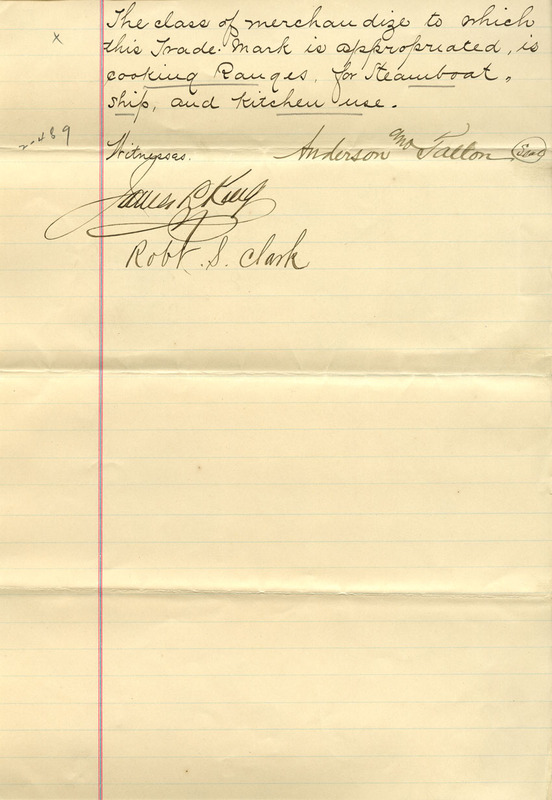 The class of merchandize to which
x
this Trade-Mark is appropriated, is
cooking Ranges, for Steamboat,
ship, and kitchen use.
2-489
Witnesses. Anderson and Fallon Seal
James R King
Robt. S. Clark